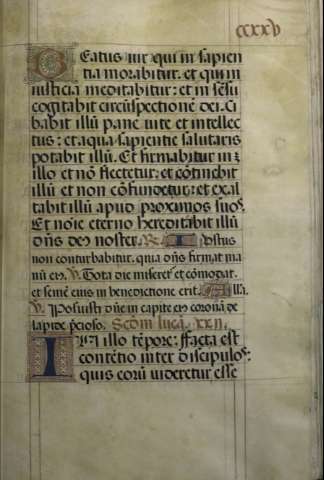 ccxxv
BEatus uir qui in sapien
tia morabitur. et qui in
iusticia meditabitur: et in sēsu
cogitabit circūspectionē dei. Ci
babit illū pane uite et intellec
tus: et aqua sapientie salutaris
potabit illū. Et firmabitur in
illo et nō flectetur: et cōtinebit
illū et non cōfundetur: et exal
tabit illū apud proximos suos.
Et noīe eterno hereditabit illū
dn̄s deus noster. Iustus
non conturbabitur. quia dn̄s firmat ma
nū eius. ℣. Tota die miseretur et cōmodat.
et semē eius in benedictione erit. Alla.
℣. Posuisti dn̄e in capite eius coronā de
lapide p̄cioso. Scdm lucā. xxii.
IN illo tēpore: ffacta est
contētio inter discipulos:
quis eorū videretur esse